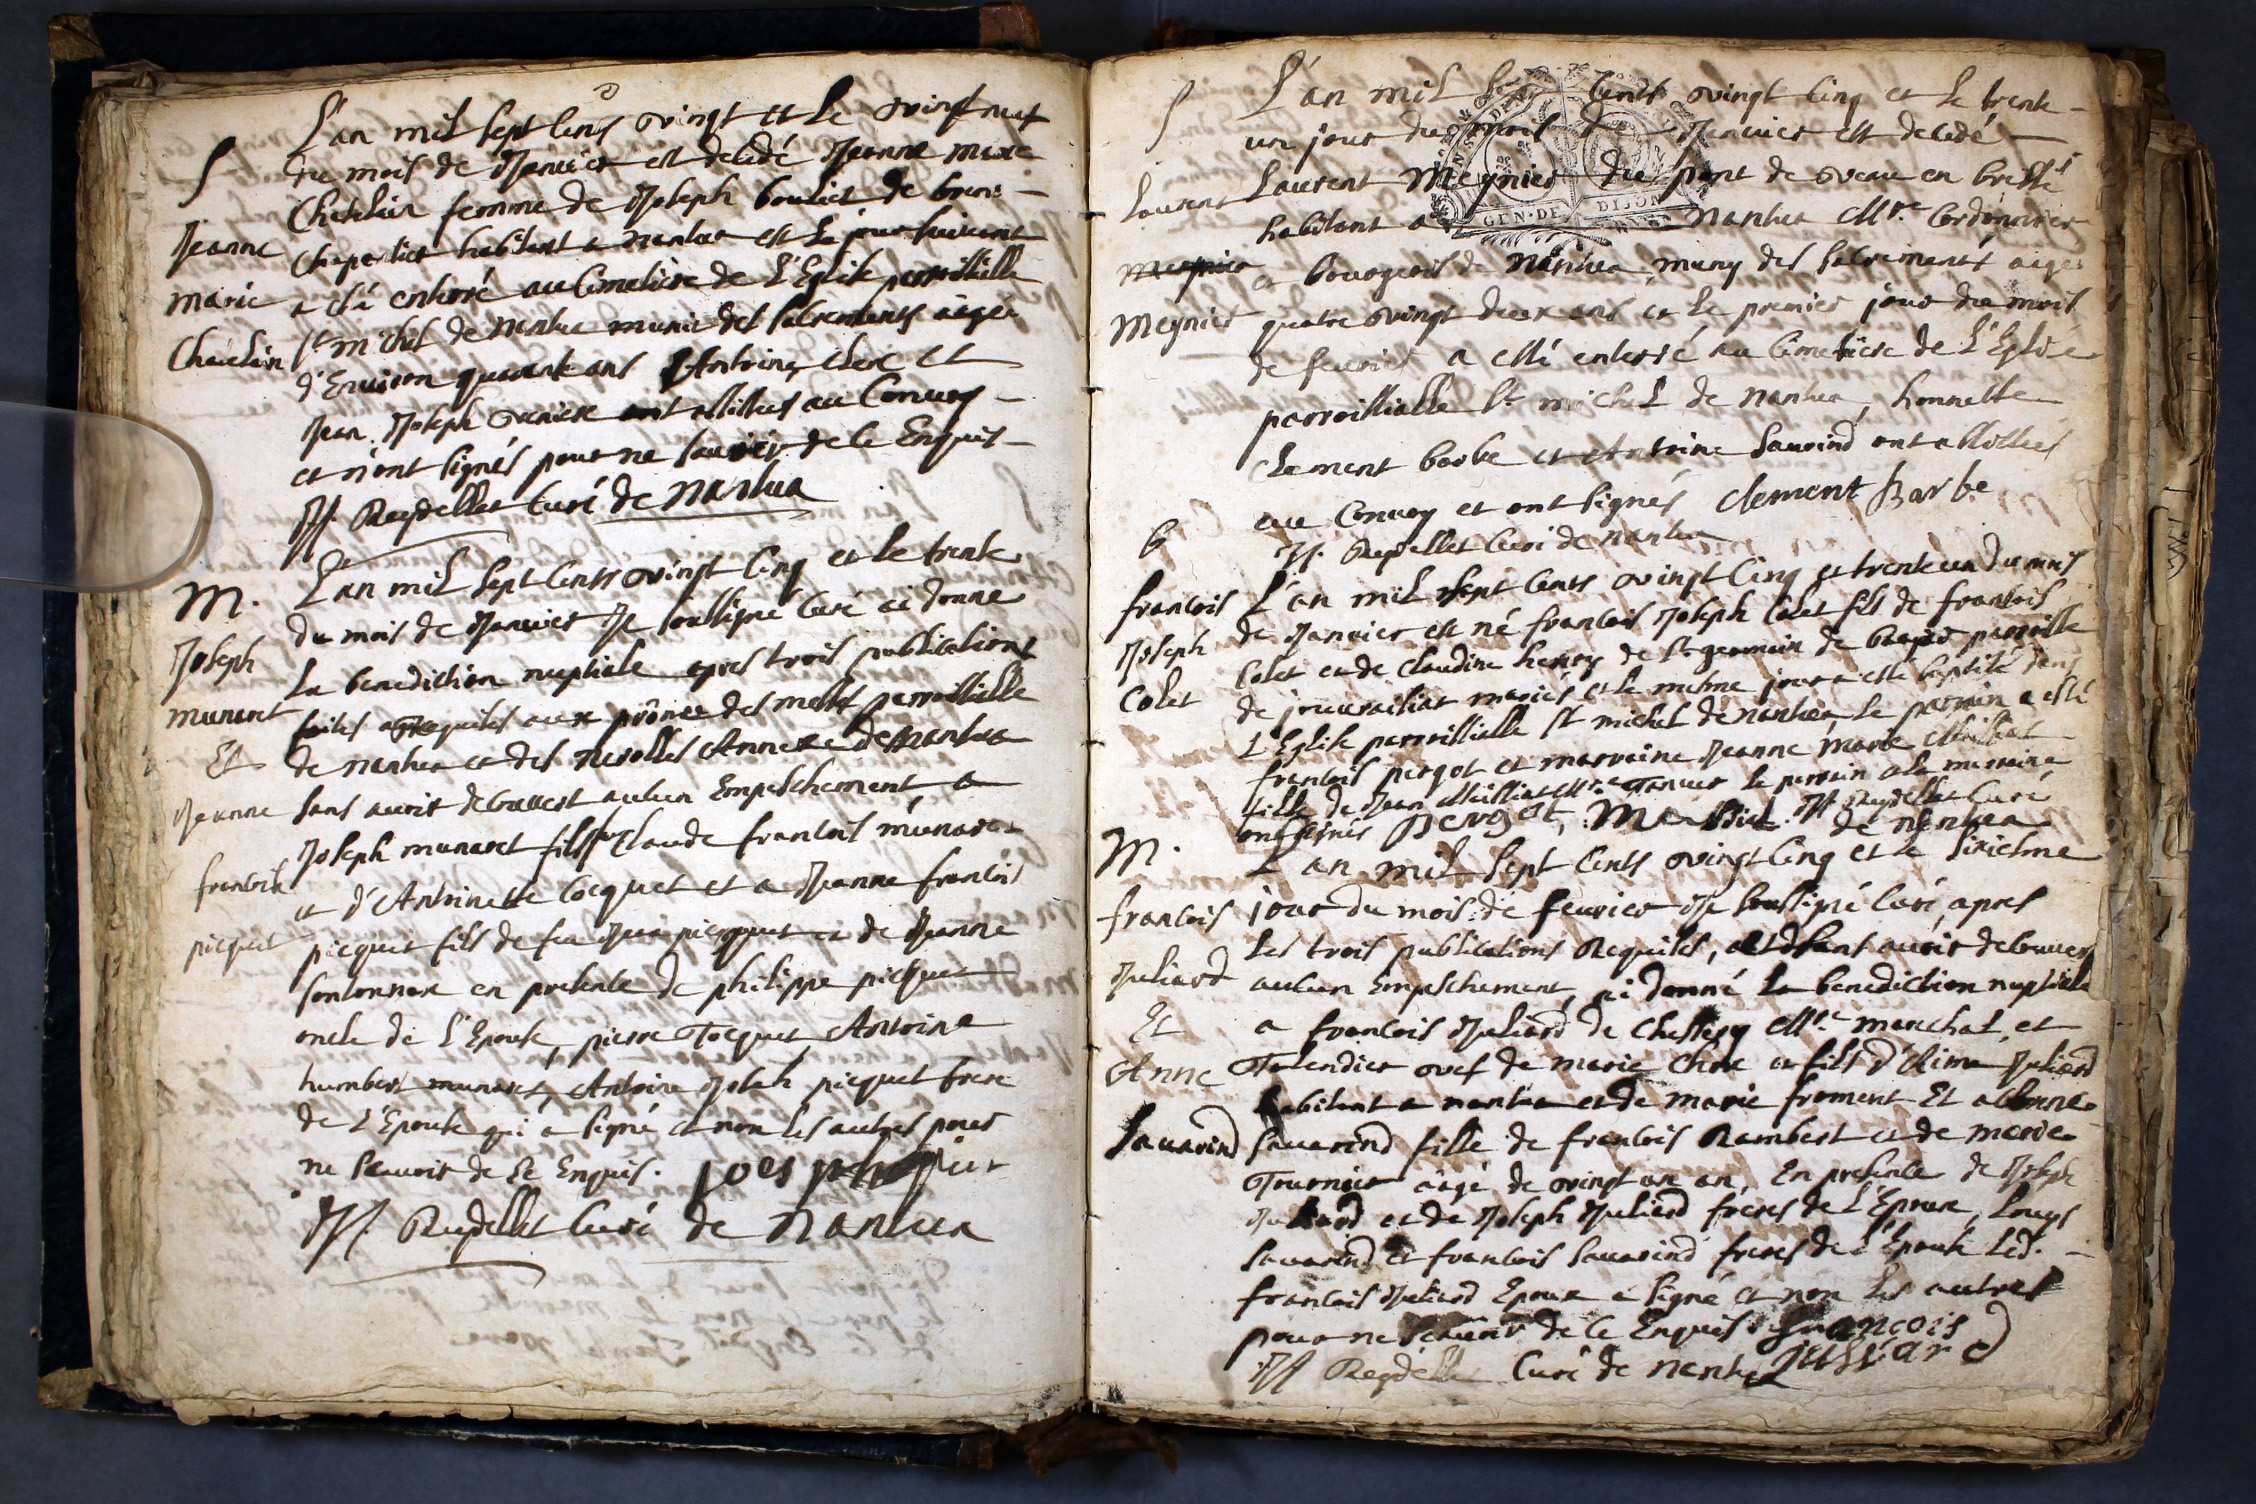 L'an mil sept cents vingt et le vingt neuf
S
du mois de Janvier est decedé Jeanne marie
Chatelain femme de Joseph bouliet de
Jeanne
Charpentier habitant a nantua et le jour suivant
marie
a esté enterré au Cimetiere de L'Eglise parroissialle
Chatelain
St michel de nantua munie des sacrements aagée
d'Environ quarante ans Antoine clerc et
Jean Joseph ont assistes au Convoy
et n'ont signés pour ne sauoir de ce Enquis
JJ. Reydellet Curé de nantua
M.
L'an mil sept cents vingt cinq et le trente
du mois de Janvier Je soussigné curé ai donné
Joseph
La benediction nuptiale apres trois publications
munaret
faites et requises aux prônes des messes parroissialle
Et
de nantua et des nerolles Annexe de nantua
Jeanne
sans auoir decouvert aucun Empeschement a
Joseph munaret fils de Claude francois munaret
francoise
et d'Antoinette Cocquet et a Jeanne francoise
picquet
picquet fils de feu picquet et de Jeanne
sontonnax en presence de philippe picquet
oncle de L'Epouse, pierre Tocquet Antoine
humbert munaret, Antoine Joseph picquet frere
de L'Epouse qui a signé et non les autres pour
ne sauoir de ce Enquis.
JJ. Reydellet Curé de nantua
S
L'an mil sept cents vingt cinq et le trente
un jour du mois de Janvier est decedé
Laurent
Laurent Meynier du pont de veau en bresse
habitant a nantua Mre. Cordonnier
meynier
et bourgeois de nantua, muny des sacrements aagé
Meynier
quatre vingt deux ans et le premier jour du mois
de feurier a esté enterré au Cimetiere de L'Eglise
parroissialle St. michel de nantua, honneste
Clement barbe et Antoine sauarind ont assistes
au Convoy et ont signés Clement Barbe
b
JJ. Reydellet Curé de nantua
francois
L'an mil sept cents vingt cinq et trente un du mois
Joseph
de Janvier est né francois Joseph Colet fils de francois
Colet
Colet et de Claudine henry de St germain de parroisse
de mariés et le mesme jour a esté baptisé dans
L'Eglise parroissialle St michel de nantua le parrain a esté
francois pergot et marraine Jeanne marie
fille de Jean Mre Tanneur le parrain et la marraine
ont signés Pergot, JJ Reydellet Curé
M.
de nantua
L'an mil sept cents vingt cinq et le sixiesme
francois
jour du mois de feurier Je soussigné Curé, apres
Les trois publications Requises, et sans auoir decouuert
Juliard
aucun Empeschement, ai donné La benediction nuptiale
Et
a francois Juliard de Chessery Mre. marechal et
Anne
Talendier vef de marie et fils d'Aimé Juliard
habitant a nantua et de marie froment Et a Anne
Sauarind
sauarind fille de francois Rambert et de marie
Tournier aagé de vingt un an, En presence de Joseph
Juliard et de Joseph Juliard freres de L'Epoux, Louys
sauarind et francois sauarind freres de L'Epouse Led.
francois Juliard Epoux a signé et non les autres
pour ne sauoir de ce Enquis françois
JJ Reydellet Curé de nantua juliiard
GEN·DE DIJON